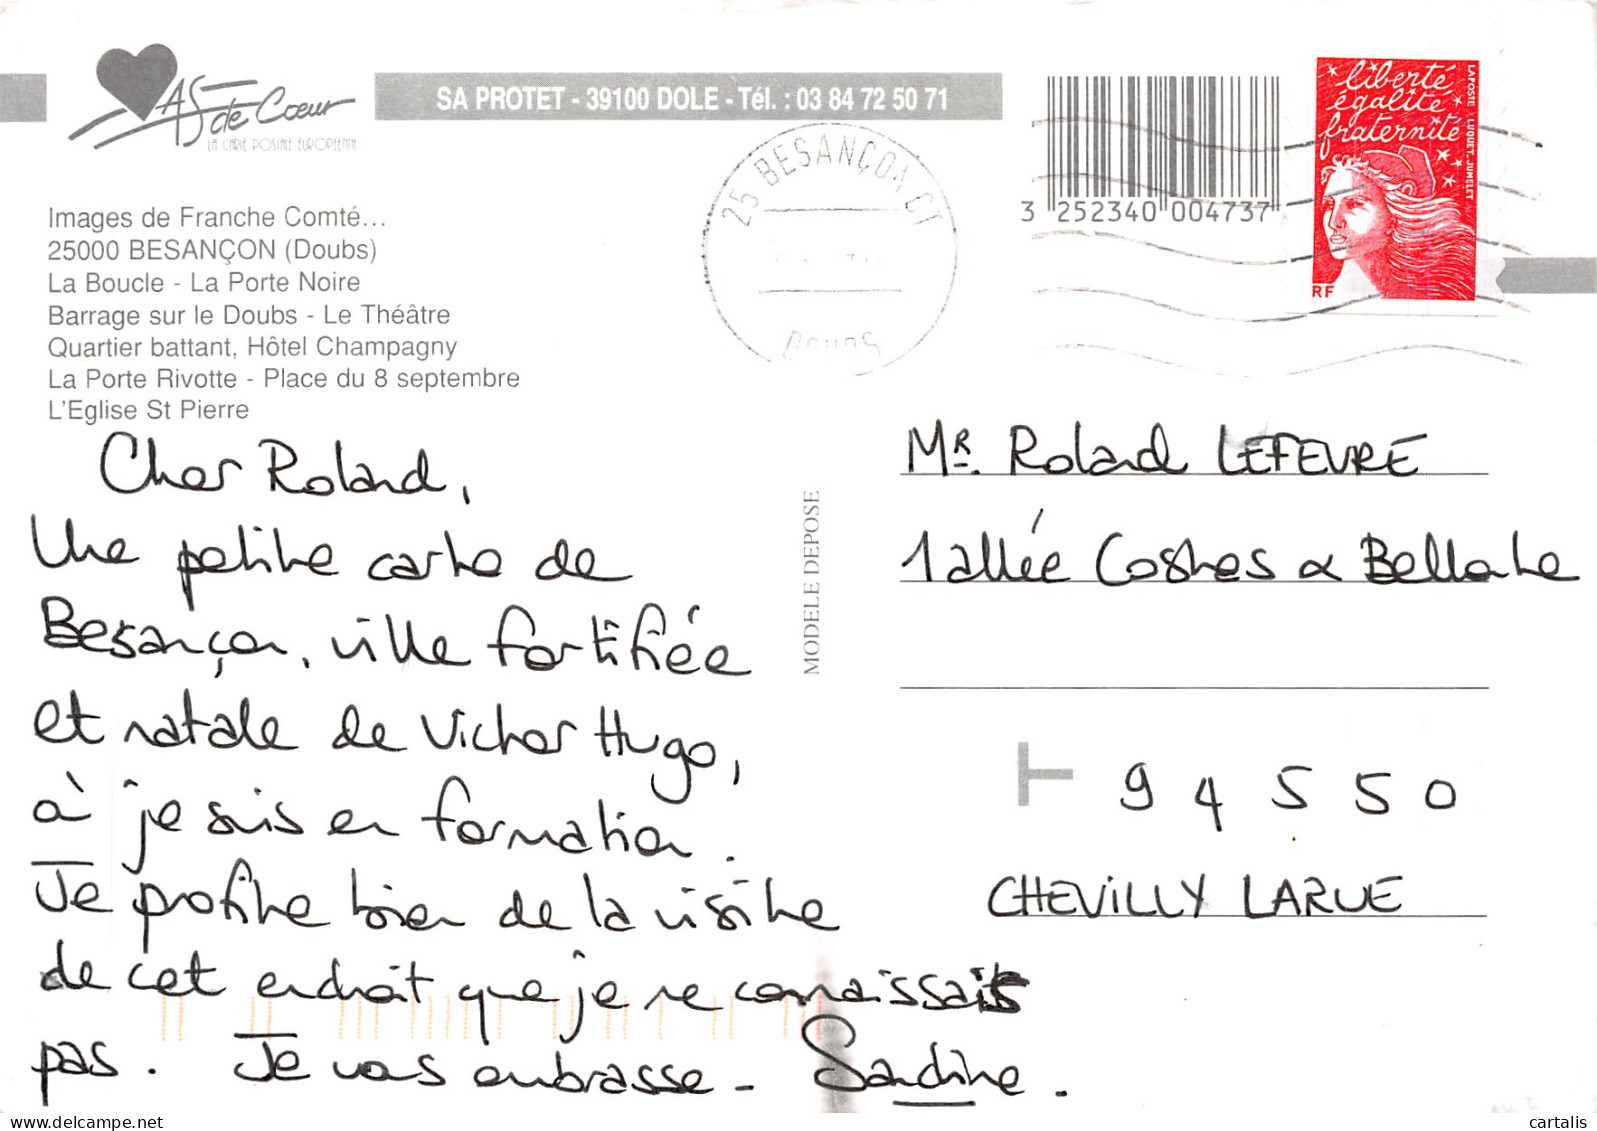 As de Cœur
LA CARTE POSTALE EUROPEENNE
SA PROTET - 39100 DOLE - Tél. : 03 84 72 50 71
Images de Franche Comté...
25000 BESANÇON (Doubs)
La Boucle - La Porte Noire
Barrage sur le Doubs - Le Théâtre
Quartier battant, Hôtel Champagny
La Porte Rivotte - Place du 8 septembre
L'Eglise St Pierre
25 BESANÇON CT
DOUBS
3 252340 004737
liberté
égalité
fraternité
LA POSTE LUQUET.T.JUMELET
RF
Cher Roland,
Une petite carte de
Besançon, ville fortifiée
et natale de Victor Hugo,
à je suis en formation.
Je profite bien de la visite
de cet endroit que je ne connaissais
pas. Je vous embrasse - Sandrine.
MODELE DEPOSE
Mr. Roland LEFEVRE
1 allée Costes & Bellonte
94550
CHEVILLY LARUE
cartalis